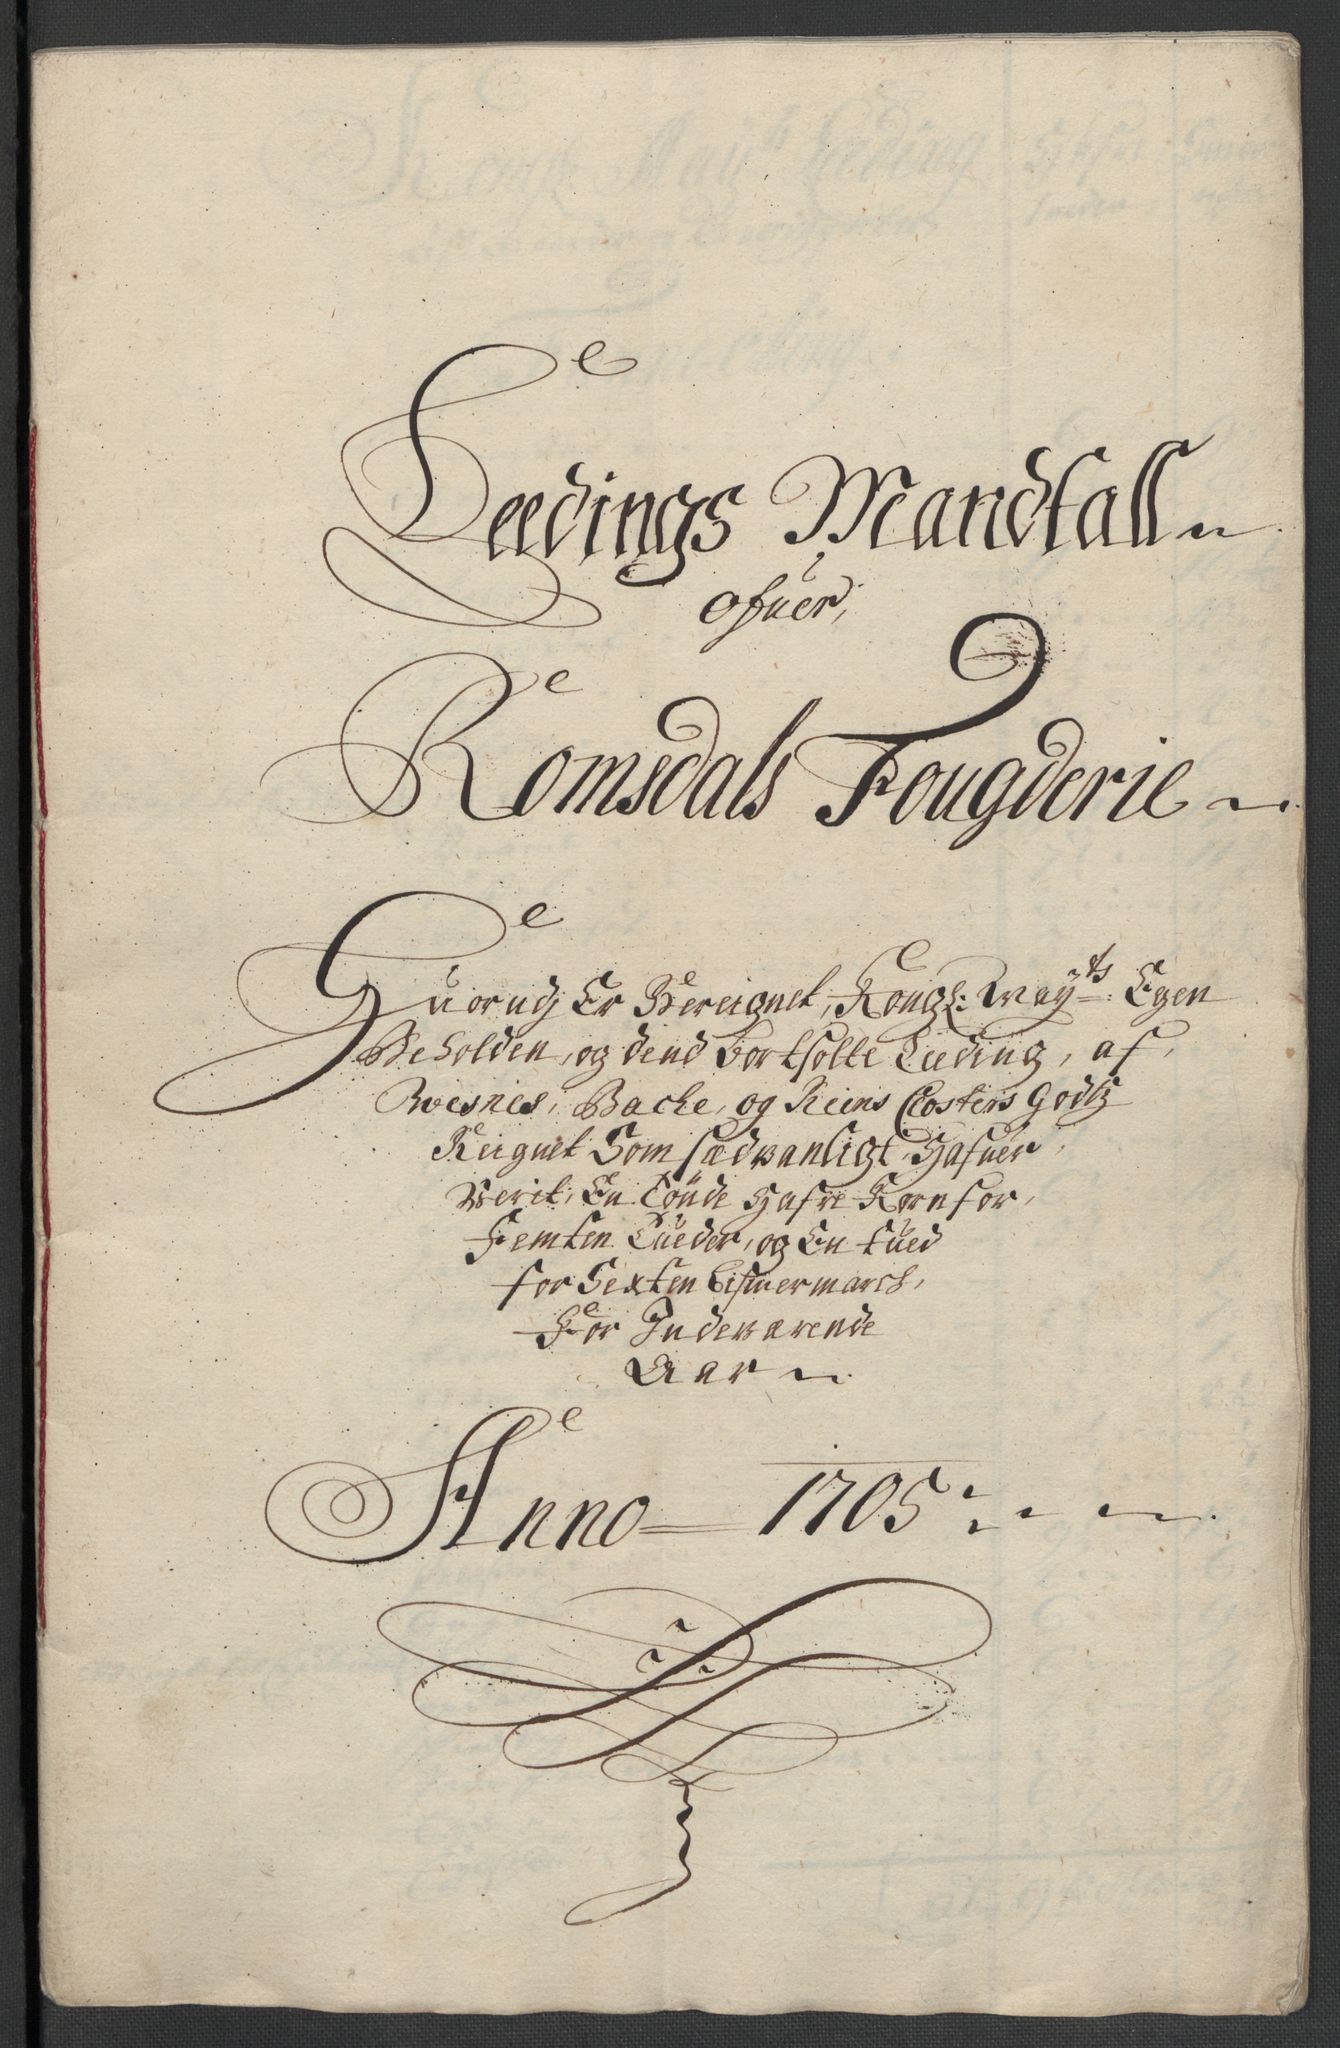 Leedings Mandtall
ofuer,
Romsdals Fougderie
Huorudj Er Bereignet, Kongl: May:ts Egen
Beholden, og dend bortsolte Leeding, af,
Giesnes, Bache, og Reins Closters Godtz
Reignet Som sædvanligt Hafuer
Verit, En Tönde Hafre Korn for,
Femten Lueder, og En Lued
for Sexten bismermarch,
For Indeværende
Aar
Anno 1705